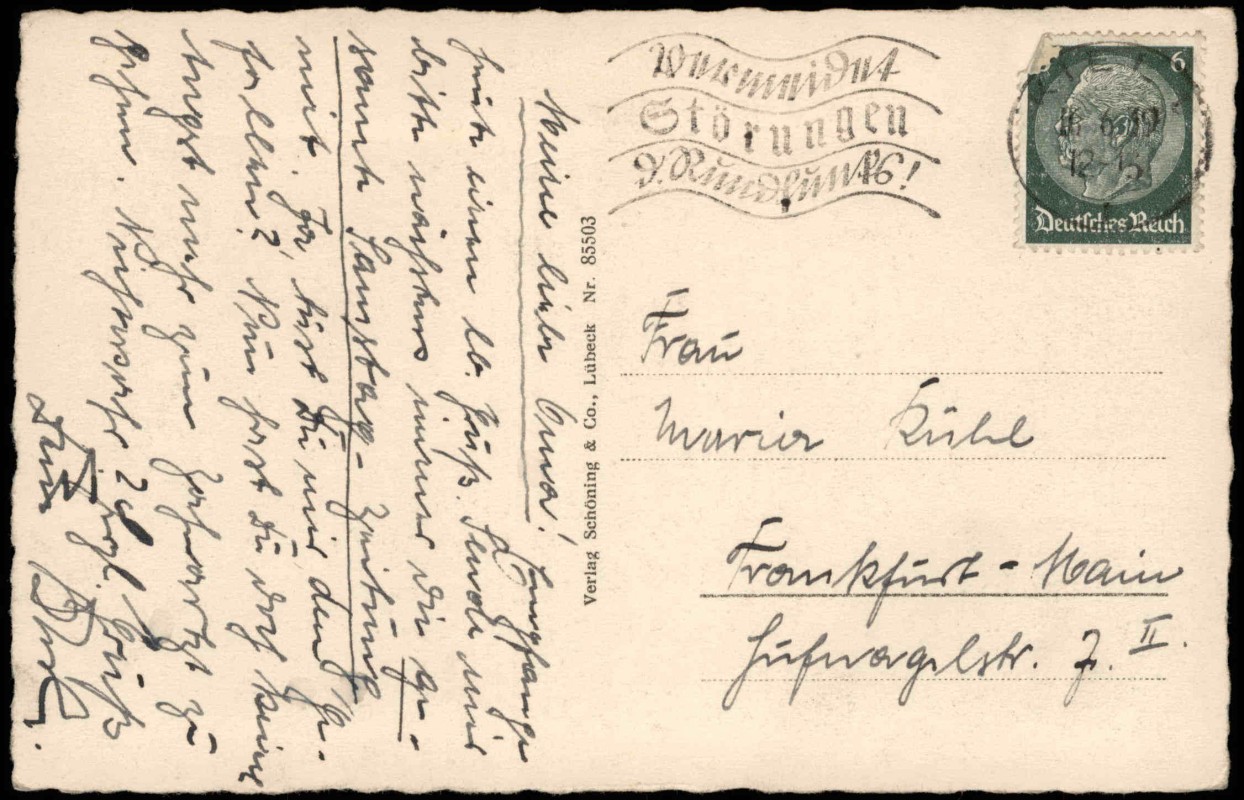 Meine liebe Oma!
Empfange
heute einen lb. Gruß. Sende mir
bitte nächstens immer die ge-
samte Samstag-Zeitung
mit. Ja, tust Du mir den Ge-
fallen? Nun hast Du doch keine
Angst mehr zum Zahnarzt zu
gehen. Herzl. Gruß
Dein
Verlag Schöning & Co., Lübeck Nr. 85503
Vermeidet
Störungen
d. Rundfunks!
KIEL
16.6.
6
Deutsches Reich
Frau
Maria Kühl
Frankfurt-Main
Hufnagelstr. 7. II.